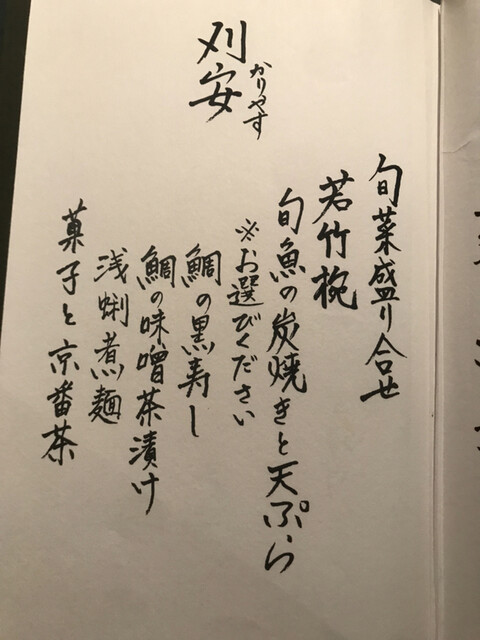 刈安
かりやす
旬菜盛り合せ
若竹椀
旬魚の炭焼きと天ぷら
※お選びください
鯛の黒寿し
鯛の味噌茶漬け
浅蜊煮麺
菓子と京番茶